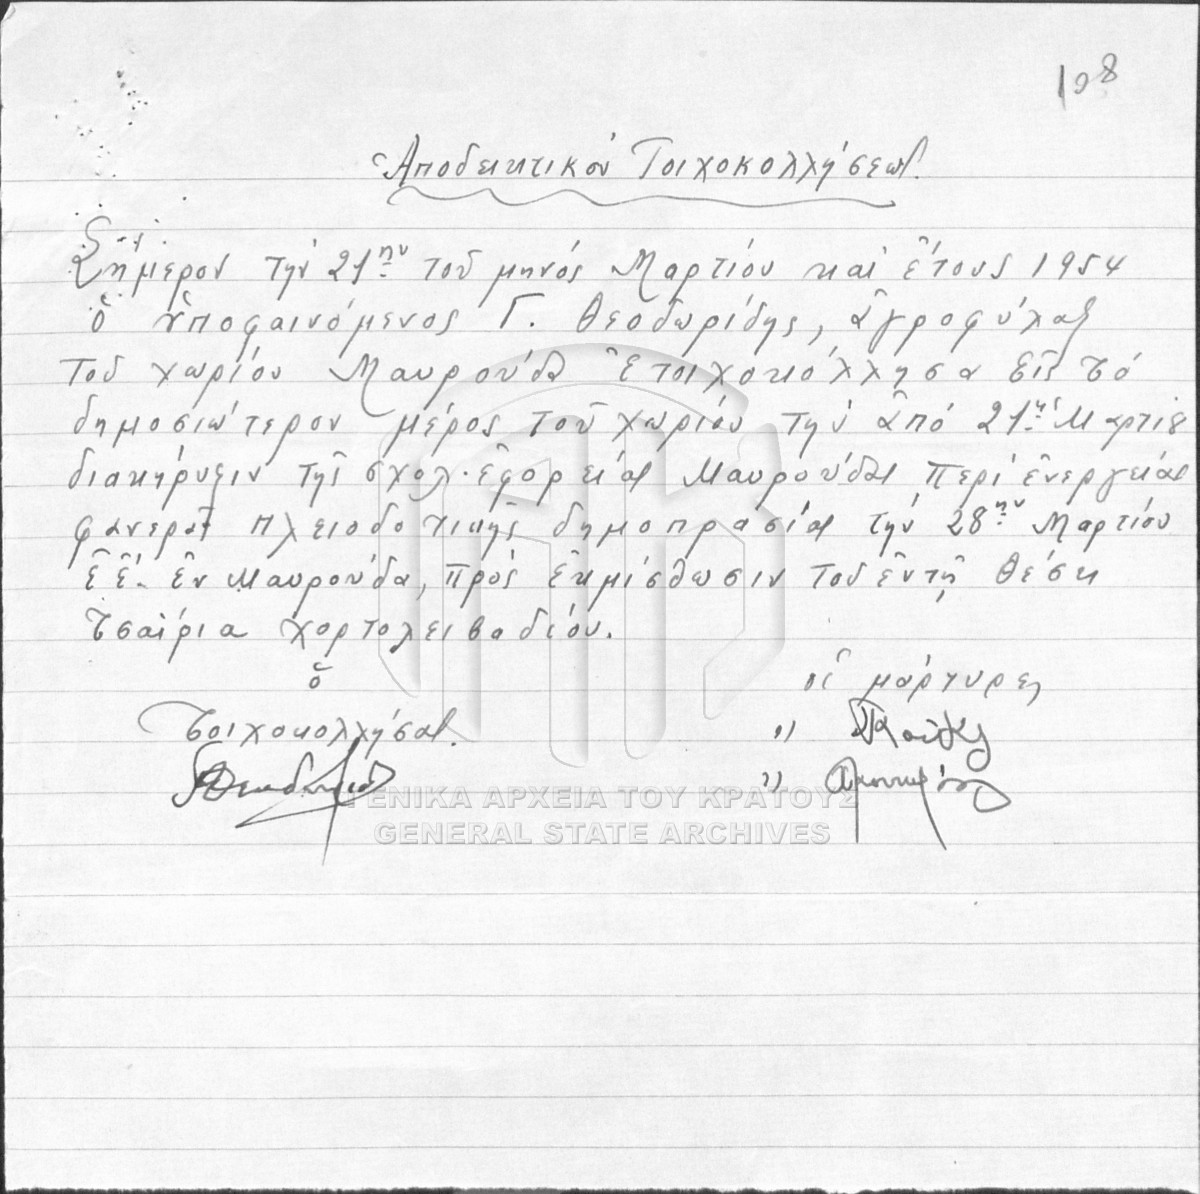 198
Ἀποδεικτικόν Τοιχοκολλήσεως.
Σήμερον τήν 21ην τοῦ μηνός Μαρτίου καί ἔτους 1954
ὁ ὑποφαινόμενος Γ. Θεοδωρίδης, ἀγροφύλαξ
τοῦ χωρίου Μαυρούδα ἐτοιχοκόλλησα εἰς τό
δημοσιώτερον μέρος τοῦ χωρίου τήν ἀπό 21ης Μαρτίου
διακήρυξιν τῆς σχολ. ἐφορείας Μαυρούδας περί ἐνεργείας
φανερᾶς πλειοδοτικῆς δημοπρασίας τήν 28ην Μαρτίου
ἐ.ἔ. ἐν Μαυρούδα, πρός ἐκμίσθωσιν τοῦ ἐν τῇ θέσει
Τσαΐρια χορτολειβαδίου.
ὁ
Τοιχοκολλήσας.
οἱ μάρτυρες
ΓΕΝΙΚΑ ΑΡΧΕΙΑ ΤΟΥ ΚΡΑΤΟΥΣ
GENERAL STATE ARCHIVES